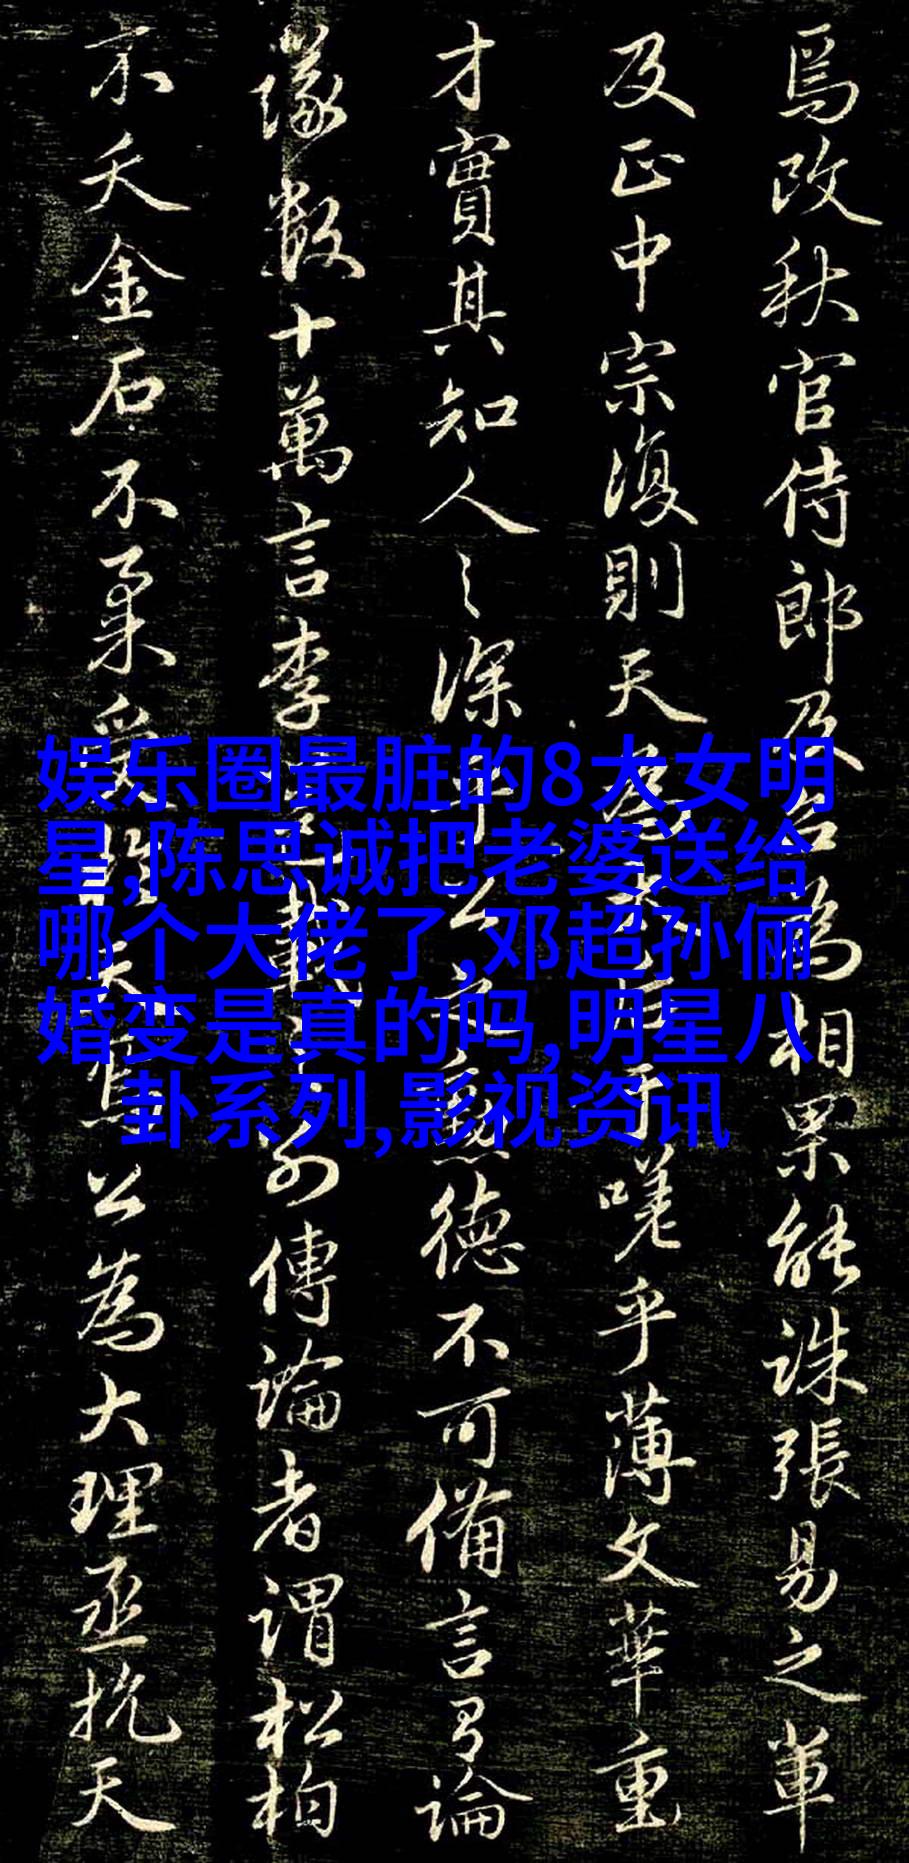 焉改秋官侍郎及召為相果能誅張易之輩
及正中宗復則天為嗟乎薄文華重
才實其知人之深乎公之勲德不可備言有論
數十萬言李邕載之別傳論者謂松柏
不夭金石不柔受天焉公為大理丞抗天
娱乐圈最脏的8大女明
星,陈思诚把老婆送给
哪个大佬了,邓超孙俪
婚变是真的吗,明星八
卦系列,影视资讯